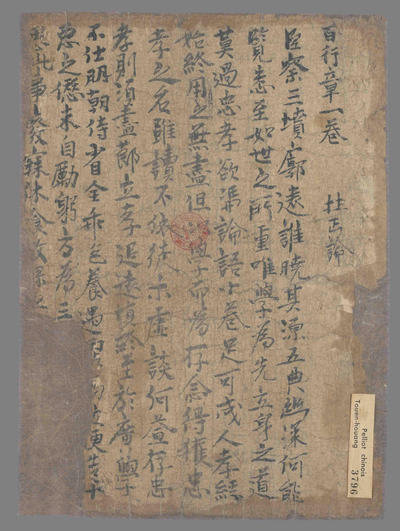 百行章一卷 杜正論
臣察三墳廓遠誰曉其源五典幽深何能
覽悉至如世之所重唯學為先立身之道
莫過忠孝欲憑論語十卷足可成人孝經
始終用之無盡但學而為存念得獲忠
孝之名雖讀不依徒示虛談何益存忠
孝則須盡節立孝追遠慎終至於廣學
不仕明朝侍省全乖色養遇高位便造十
惡之愆未自勵躬方為三
事
Pelliot chinois
Touen-houang
3796